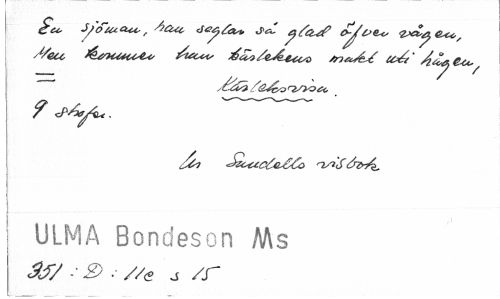 En sjöman, han seglar så glad öfver vågen,
Men kommer han kärlekens makt uti hågen,
Kärleksvisa.
9 strofer.
Ur Sundells visbok
ULMA Bondeson Ms
351 : D : 11e s 15